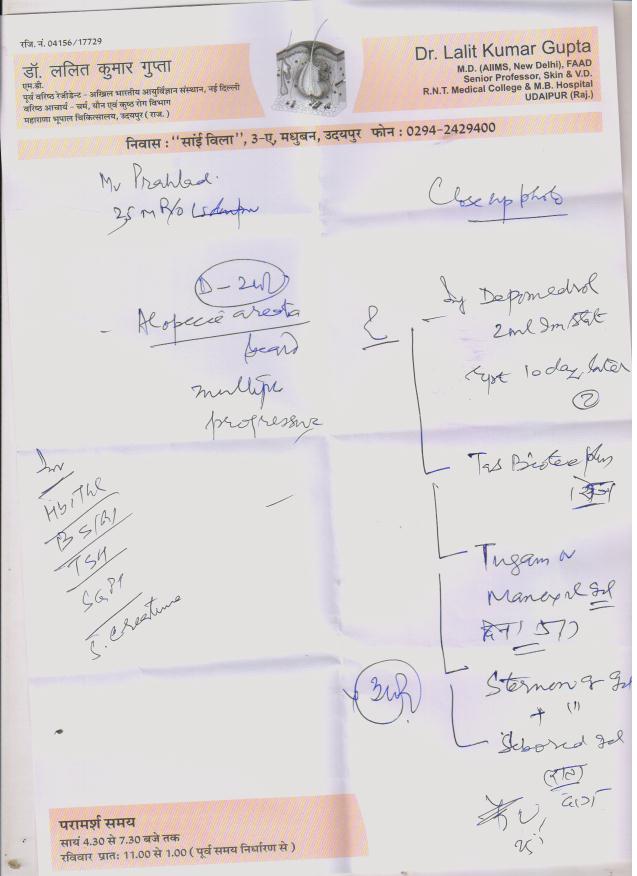 रजि. नं. 04156/17729
डॉ. ललित कुमार गुप्ता
एम.डी.
पूर्व वरिष्ठ रेजीडेन्ट - अखिल भारतीय आयुर्विज्ञान संस्थान, नई दिल्ली
वरिष्ठ आचार्य - चर्म, यौन एवं कुष्ठ रोग विभाग
महाराणा भूपाल चिकित्सालय, उदयपुर ( राज. )
Dr. Lalit Kumar Gupta
M.D. (AIIMS, New Delhi), FAAD
Senior Professor, Skin & V.D.
R.N.T. Medical College & M.B. Hospital
UDAIPUR (Raj.)
निवास : "सांई विला", 3-ए, मधुबन, उदयपुर फोन : 0294-2429400
Mr Prahlad.
35 m R/o
Close up photo
Alopecia areata
beard
multiple
progressive
Inj Depomedrol
2ml Im Stat
Rept 10 day later
2
Inv
Hb, TLC
BS(R)
TSH
SGPT
S. Creatinine
Tab Biotee plus
Tugain or
Manexil gel
Gel
+ "
Sebored gel
परामर्श समय
सायं 4.30 से 7.30 बजे तक
रविवार प्रात: 11.00 से 1.00 ( पूर्व समय निर्धारण से )